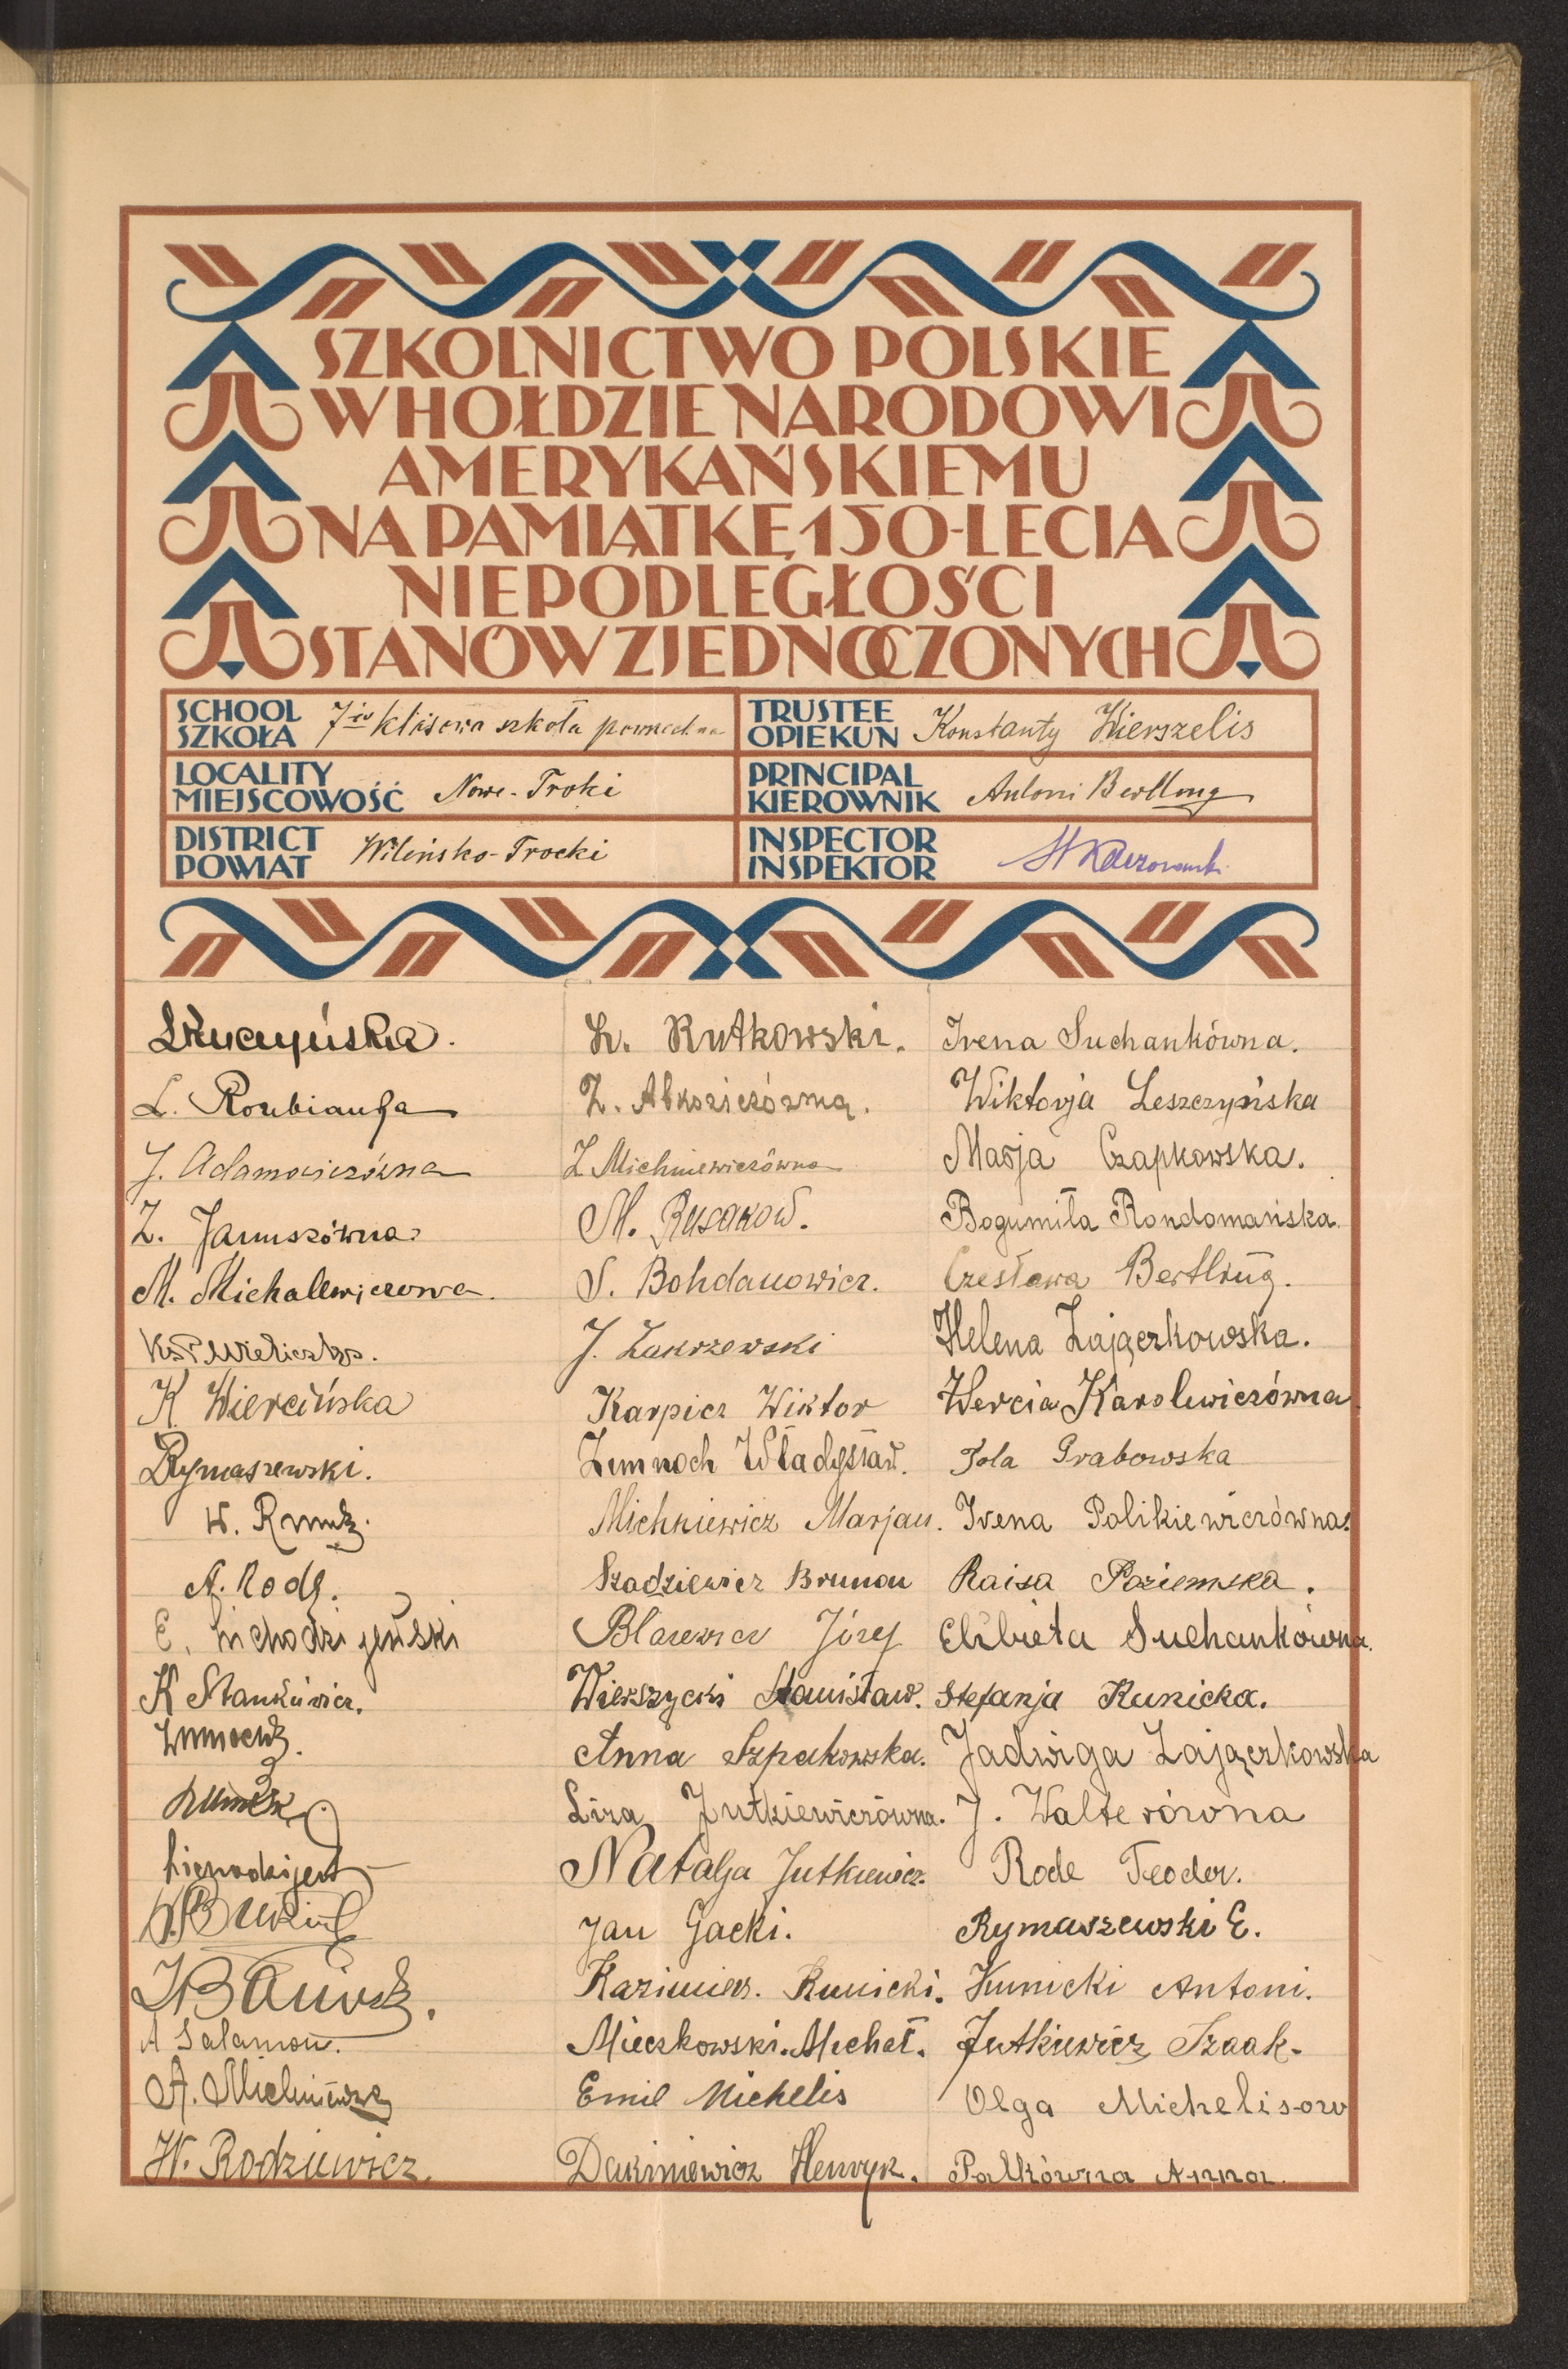 SZKOLNICTWO POLSKIE
W HOŁDZIE NARODOWI
AMERYKAŃSKIEMU
NA PAMIĄTKĘ 150-LECIA
NIEPODLEGŁOŚCI
STANÓW ZJEDNOCZONYCH
SCHOOL
SZKOŁA
7io klasowa szkoła powszechna
TRUSTEE
OPIEKUN
Konstanty Wierszelis
LOCALITY
MIEJSCOWOŚĆ
Nowe-Troki
PRINCIPAL
KIEROWNIK
Antoni Bertling
DISTRICT
POWIAT
Wileńsko-Trocki
INSPECTOR
INSPEKTOR
J. Adamowiczówna
Z. Januszówna
M. Michalewiczowa
K. Wiercińska
Rymaszewski.
W.
A. Rode.
E.
K Stankiewicz.
A Salamon.
W. Rodziewicz.
Rutkowski.
Z.
Z Michniewiczówna
M. Rusakow.
S. Bohdanowicz.
J. Zakrzewski
Karpicz Wiktor
Zimnoch Władysław.
Michniewicz Marjan.
Szadziewicz Brunon
Błazewicz Józef
Wierszycki Stanisław.
Anna Szpakowska.
Liza Jutkiewiczówna.
Natalja Jutkiewicz.
Jan Gacki.
Kazimierz. Kunicki.
Mieczkowski. Michał.
Emil Michelis
Henryk.
Irena Suchankówna.
Wiktorja Leszczyńska
Marja Czapkowska.
Bogumiła Rondomańska.
Czesława Bertling.
Helena Zajączkowska.
Karolewiczówna
Jola Grabowska
Irena Polikiewiczówna.
Raisa Poziemska.
Elżbieta Suchankówna.
Stefanja Kunicka.
Jadwiga Zajączkowska
J. Walterówna
Rode Teodor.
Rymaszewski E.
Kunicki Antoni.
Jutkiewicz Izaak.
Olga Michelisów
Palkówna Anna.